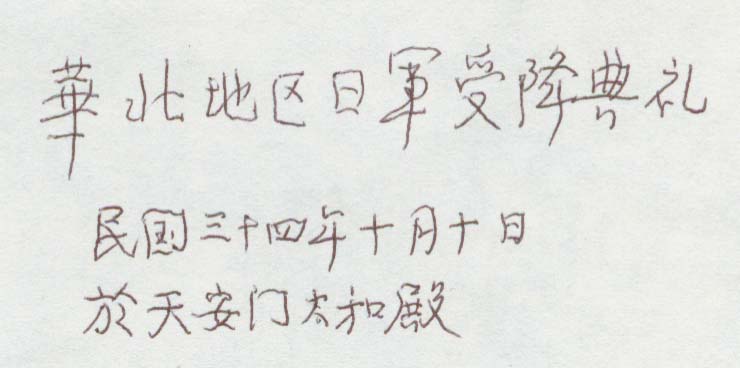 華北地区日軍受降典礼
民国三十四年十月十日
於天安门太和殿